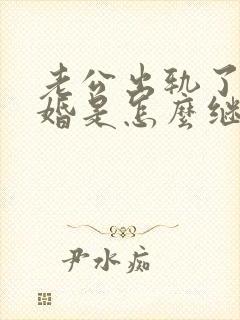 老公出轨了
婚是怎麼继
尹水痴